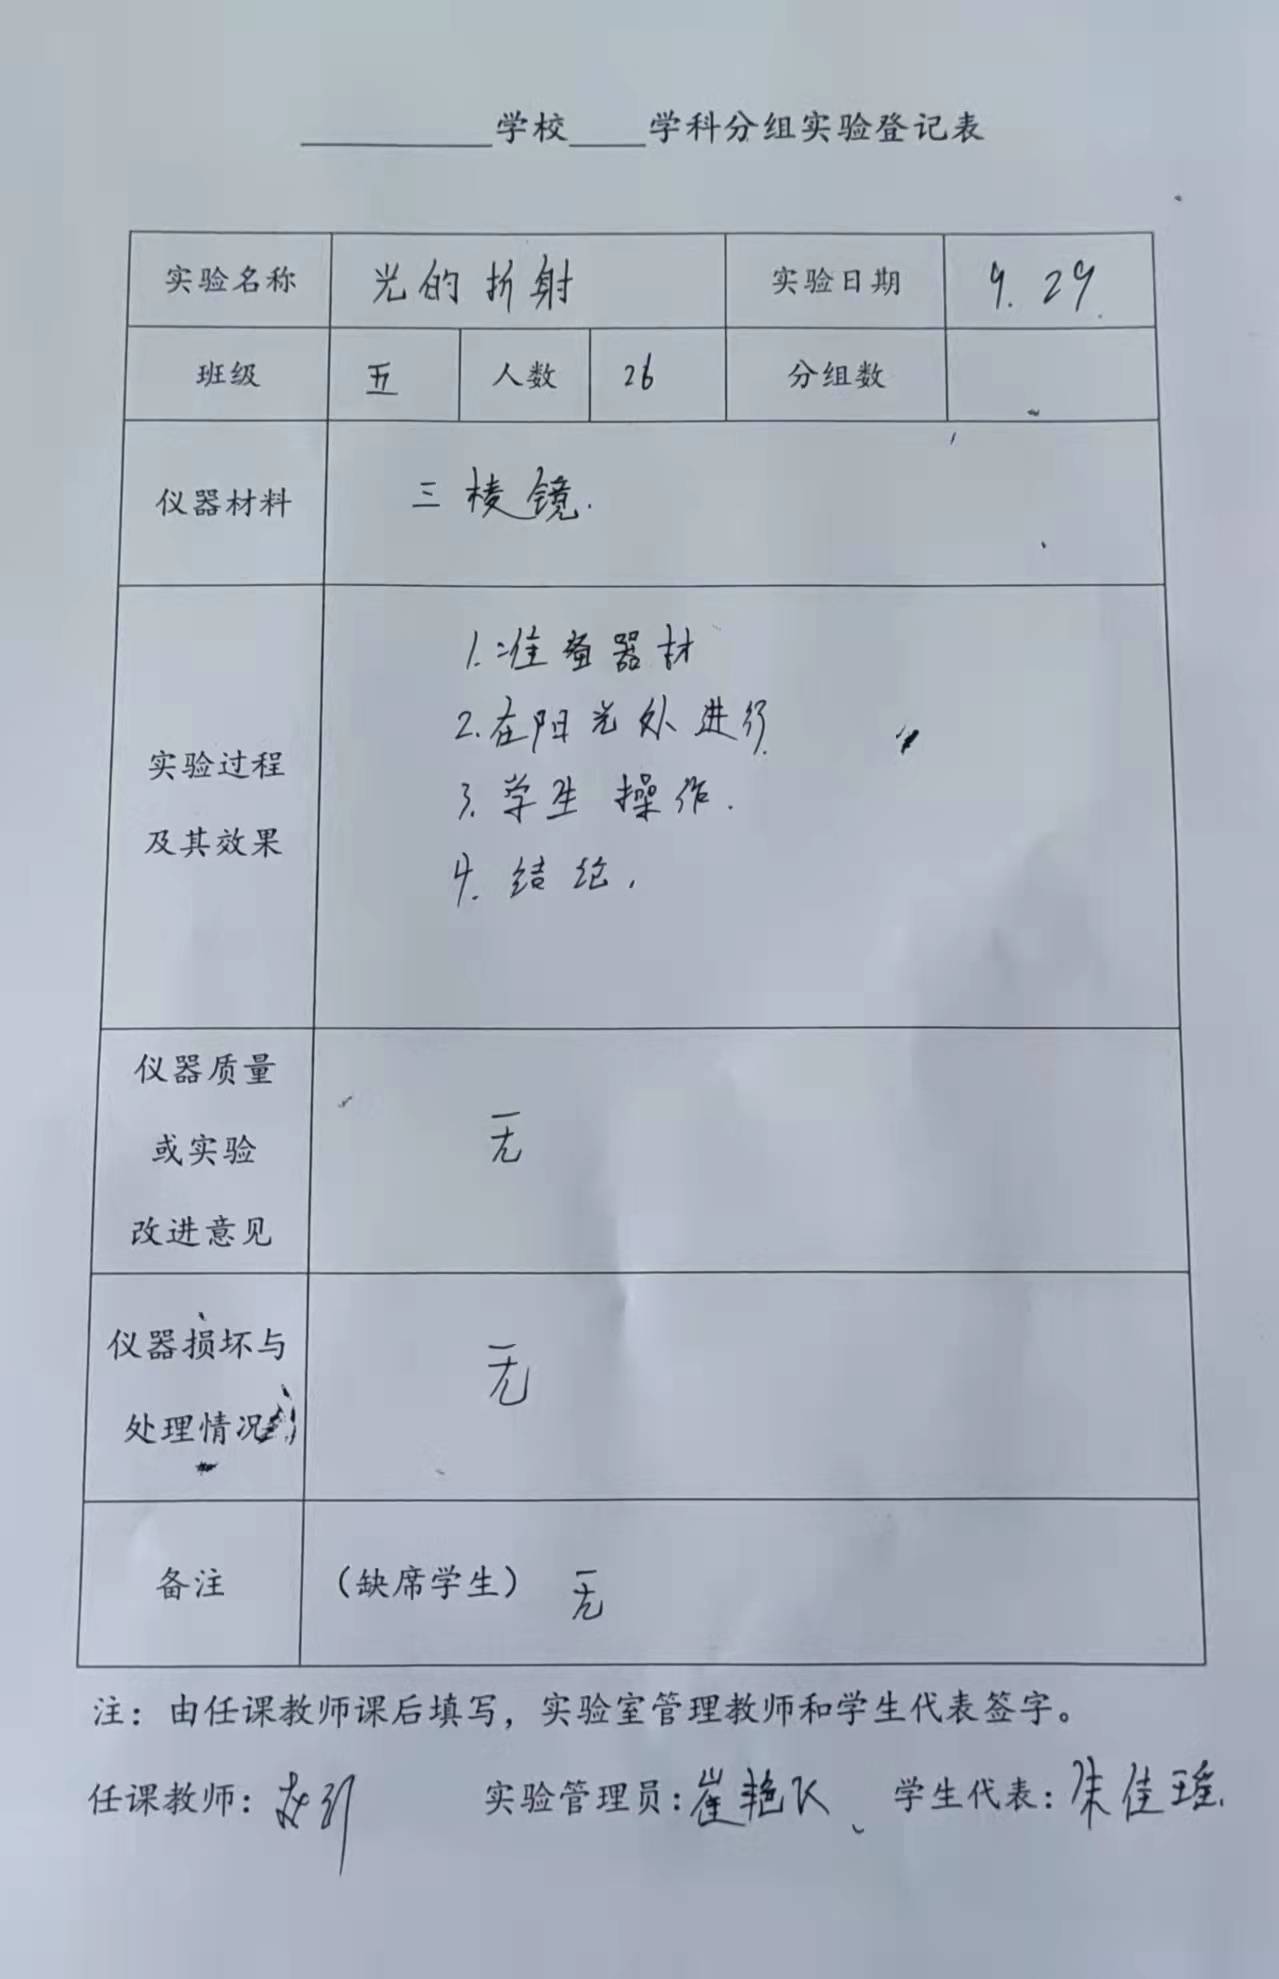 __________学校____学科分组实验登记表
实验名称 光的折射 实验日期 9.29.
班级 五 人数 26 分组数
仪器材料 三棱镜.
1.准备器材
2.在阳光处进行.
实验过程
3.学生操作.
及其效果
4.结论.
仪器质量
或实验 无
改进意见
仪器损坏与 无
处理情况
备注 （缺席学生） 无
注：由任课教师课后填写，实验室管理教师和学生代表签字。
任课教师： 实验管理员：崔艳 学生代表：朱佳瑶.